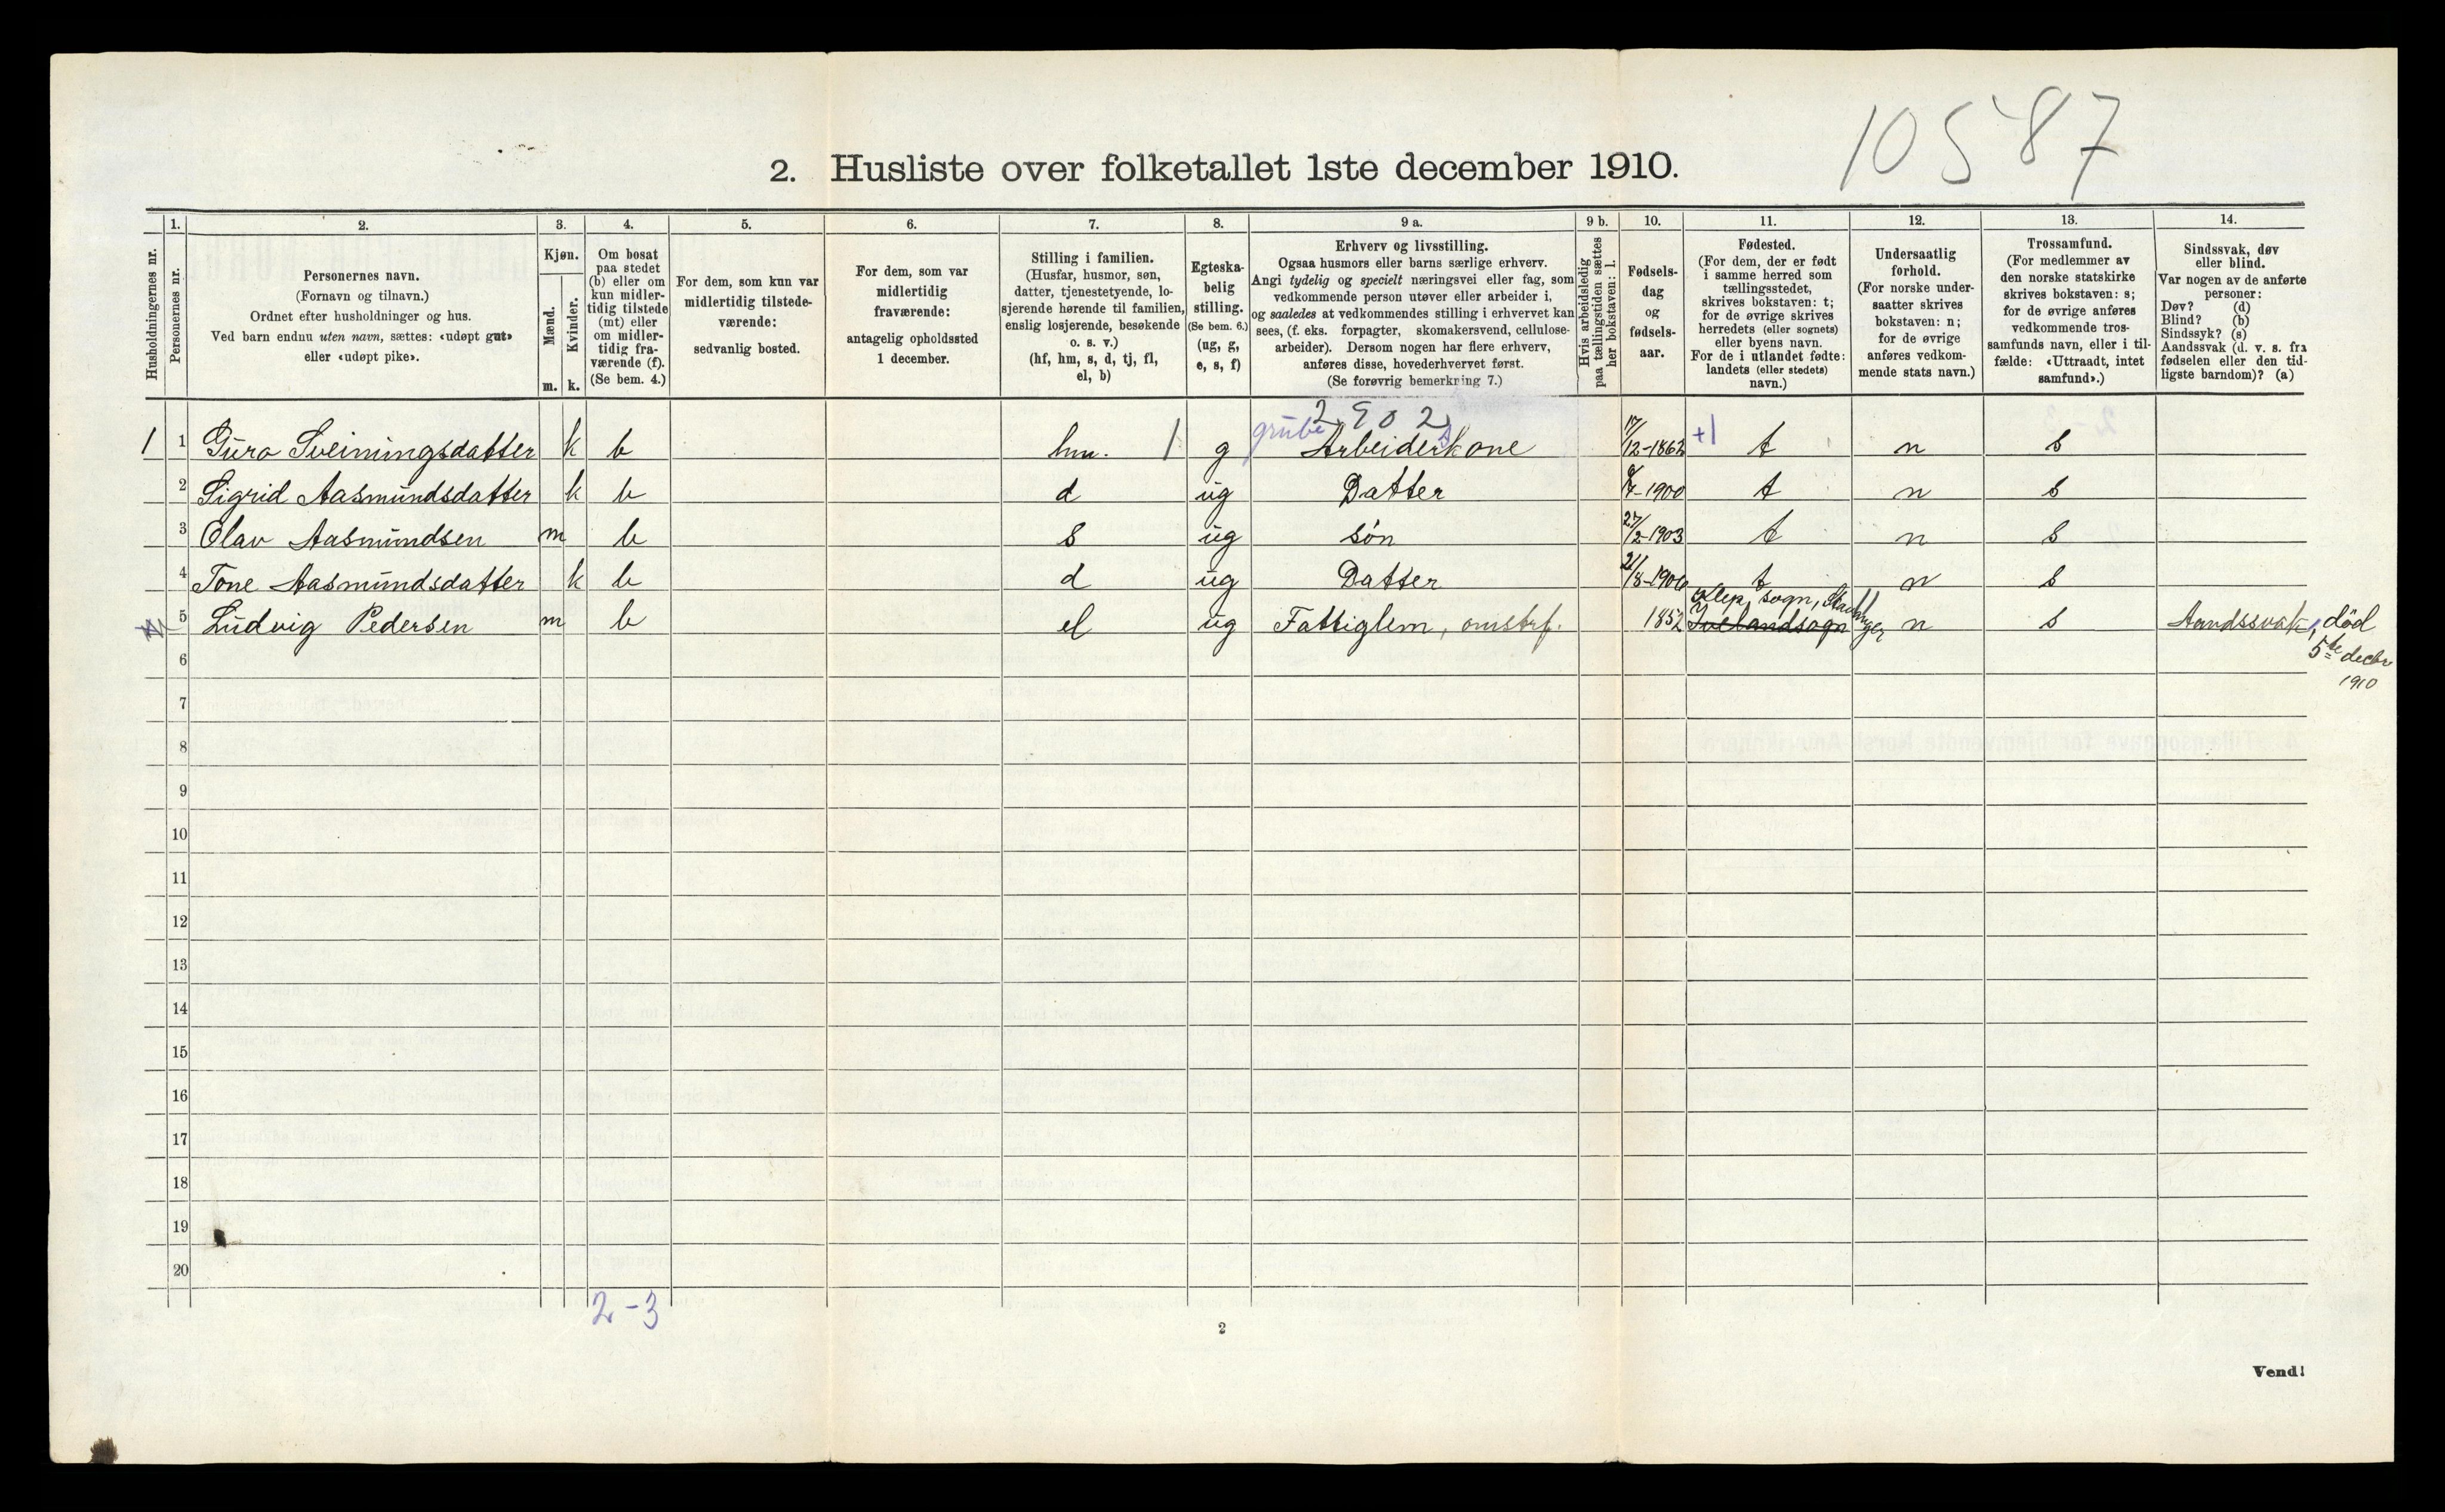 10587
2. Husliste over folketallet 1ste december 1910.
Husholdningernes nr.
1.
Personernes nr.
2.
Personernes navn.
(Fornavn og tilnavn.)
Ordnet efter husholdninger og hus.
Ved barn endnu uten navn, sættes: «udøpt gut»
eller «udøpt pike».
3.
Kjøn.
Mænd.
Kvinder.
m. k.
4.
Om bosat
paa stedet
(b) eller om
kun midler-
tidig tilstede
(mt) eller
om midler-
tidig fra-
værende (f).
(Se bem. 4.)
5.
For dem, som kun var
midlertidig tilstede-
værende:
sedvanlig bosted.
6.
For dem, som var
midlertidig
fraværende:
antagelig opholdssted
1 december.
7.
Stilling i familien.
(Husfar, husmor, søn,
datter, tjenestetyende, lo-
sjerende hørende til familien,
enslig losjerende, besøkende
o. s. v.)
(hf, hm, s, d, tj, fl,
el, b)
8.
Egteska-
belig
stilling.
(Se bem. 6.)
(ug, g,
e, s, f)
9 a.
Erhverv og livsstilling.
Ogsaa husmors eller barns særlige erhverv.
Angi tydelig og specielt næringsvei eller fag, som
vedkommende person utøver eller arbeider i,
og saaledes at vedkommendes stilling i erhvervet kan
sees, (f. eks. forpagter, skomakersvend, cellulose-
arbeider). Dersom nogen har flere erhverv,
anføres disse, hovederhvervet først.
(Se forøvrig bemerkring 7.)
9 b.
Hvis arbeidsledig
paa tællingstiden sættes
her bokstaven: l.
10.
Fødsels-
dag
og
fødsels-
aar.
11.
Fødested.
(For dem, der er født
i samme herred som
tællingsstedet,
skrives bokstaven: t;
for de øvrige skrives
herredets (eller sognets)
eller byens navn.
For de i utlandet fødte:
landets (eller stedets)
navn.)
12.
Undersaatlig
forhold.
(For norske under-
saatter skrives
bokstaven: n;
for de øvrige
anføres vedkom-
mende stats navn.)
13.
Trossamfund.
(For medlemmer av
den norske statskirke
skrives bokstaven: s;
for de øvrige anføres
vedkommende tros-
samfunds navn, eller i til-
fælde: «Uttraadt, intet
samfund».)
14.
Sindssvak, døv
eller blind.
Var nogen av de anførte
personer:
Døv? (d)
Blind? (b)
Sindssyk? (s)
Aandssvak (d. v. s. fra
fødselen eller den tid-
ligste barndom)? (a)
2902
grube
1 1 Guro Sveinungsdatter k b hm. 1 g Arbeiderskone 17/12-1862 +1 t n s
2 Sigrid Aasmundsdatter k b d ug Datter -1900 t n s
3 Olav Aasmundsen m b s ug søn 27/2-1903 t n s
4 Tone Aasmundsdatter k b d ug Datter 21/8-1906 t n s
Klep sogn, Stavanger
5 Ludvig Pedersen m b el ug Fattiglem, omstrf. 1852 Ivelandsogn n s Aandssvak, død
5te decbr
1910
6
7
8
9
10
11
12
13
14
15
16
17
18
19
20
2-3
2
Vend!